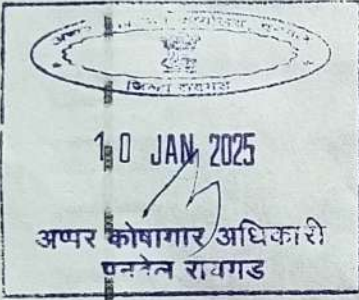 जिल्हा रायगड
10 JAN 2025
अप्पर कोषागार अधिकारी
पनवेल रायगड